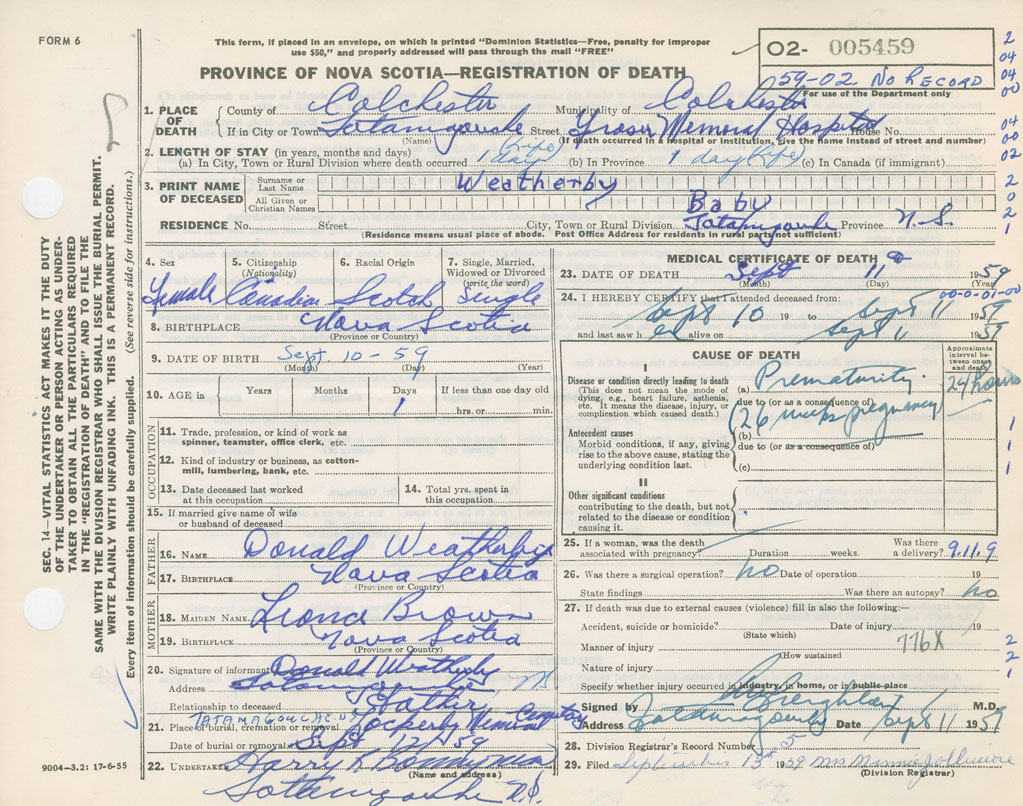 FORM 6
This form, if placed in an envelope, on which is printed "Dominion Statistics—Free, penalty for improper
use $50," and properly addressed will pass through the mail "FREE"
02- 005459
59-02 No RECORD
For use of the Department only
PROVINCE OF NOVA SCOTIA—REGISTRATION OF DEATH
1. PLACE OF DEATH County of Colchester Municipality of Colchester
If in City or Town Tatamagouche Street Fraser Memorial Hospital House No.
(Name) (If death occurred in a hospital or institution, give the name instead of street and number)
2. LENGTH OF STAY (in years, months and days)
(a) In City, Town or Rural Division where death occurred 1 day (life) (b) In Province 1 day (life) (c) In Canada (if immigrant)
3. PRINT NAME OF DECEASED Surname or Last Name Weatherby
All Given or Christian Names Baby
RESIDENCE No. Street City, Town or Rural Division Tatamagouche Province N.S.
(Residence means usual place of abode. Post Office Address for residents in rural parts not sufficient)
4. Sex 5. Citizenship (Nationality) 6. Racial Origin 7. Single, Married, Widowed or Divorced (write the word)
Female Canadian Scotch Single
8. BIRTHPLACE Nova Scotia
(Province or Country)
9. DATE OF BIRTH Sept 10-59
(Month) (Day) (Year)
10. AGE in Years Months Days If less than one day old
1 hrs. or min.
OCCUPATION
11. Trade, profession, or kind of work as
spinner, teamster, office clerk, etc.
12. Kind of industry or business, as cotton-
mill, lumbering, bank, etc.
13. Date deceased last worked
at this occupation
14. Total yrs. spent in
this occupation
15. If married give name of wife
or husband of deceased
FATHER
16. NAME Donald Weatherby
17. BIRTHPLACE Nova Scotia
(Province or Country)
MOTHER
18. MAIDEN NAME Leona Brown
19. BIRTHPLACE Nova Scotia
(Province or Country)
20. Signature of informant Donald Weatherby
Address Tatamagouche
Relationship to deceased Father
TATAMAGOUCHE N.S.
21. Place of burial, cremation or removal Lockerby Memorial Cemetery
Date of burial or removal Sept 12/1959
22. UNDERTAKER Harry
(Name and address)
Tatamagouche N.S.
MEDICAL CERTIFICATE OF DEATH
23. DATE OF DEATH Sept 11 1959
(Month) (Day) (Year)
24. I HEREBY CERTIFY that I attended deceased from: 00-0-01-00
Sept 10 19 to Sept 11 1959
and last saw h er alive on Sept 11 1959
CAUSE OF DEATH
Approximate interval between onset and death
I
Disease or condition directly leading to death
(This does not mean the mode of
dying, e.g., heart failure, asthenia,
etc. It means the disease, injury, or
complication which caused death.)
(a) Prematurity 24 hours
due to (or as a consequence of)
(26 weeks pregnancy)
Antecedent causes
Morbid conditions, if any, giving
rise to the above cause, stating the
underlying condition last.
(b)
due to (or as a consequence of)
(c)
II
Other significant conditions
contributing to the death, but not
related to the disease or condition
causing it.
25. If a woman, was the death
associated with pregnancy? Duration weeks. Was there
a delivery? 9.11.9
26. Was there a surgical operation? no Date of operation 19
State findings Was there an autopsy? no
27. If death was due to external causes (violence) fill in also the following:—
Accident, suicide or homicide? Date of injury 19
(State which)
Manner of injury 776X
(How sustained
Nature of injury
Specify whether injury occurred in industry, in home, or in public place
Signed by Creighton M.D.
Address Tatamagouche Date Sept 11 1959
28. Division Registrar's Record Number
29. Filed September 13 1959 Mrs Minnie Jollimore
(Division Registrar)
SEC. 14—VITAL STATISTICS ACT MAKES IT THE DUTY
OF THE UNDERTAKER OR PERSON ACTING AS UNDER-
TAKER TO OBTAIN ALL THE PARTICULARS REQUIRED
IN THE "REGISTRATION OF DEATH" AND TO FILE THE
SAME WITH THE DIVISION REGISTRAR WHO SHALL ISSUE THE BURIAL PERMIT.
WRITE PLAINLY WITH UNFADING INK. THIS IS A PERMANENT RECORD.
Every item of information should be carefully supplied. (See reverse side for instructions.)
9004—3.2: 17-6-55
2
04
04
00
04
00
02
2
0
2
1
1
1
1
2
2
1